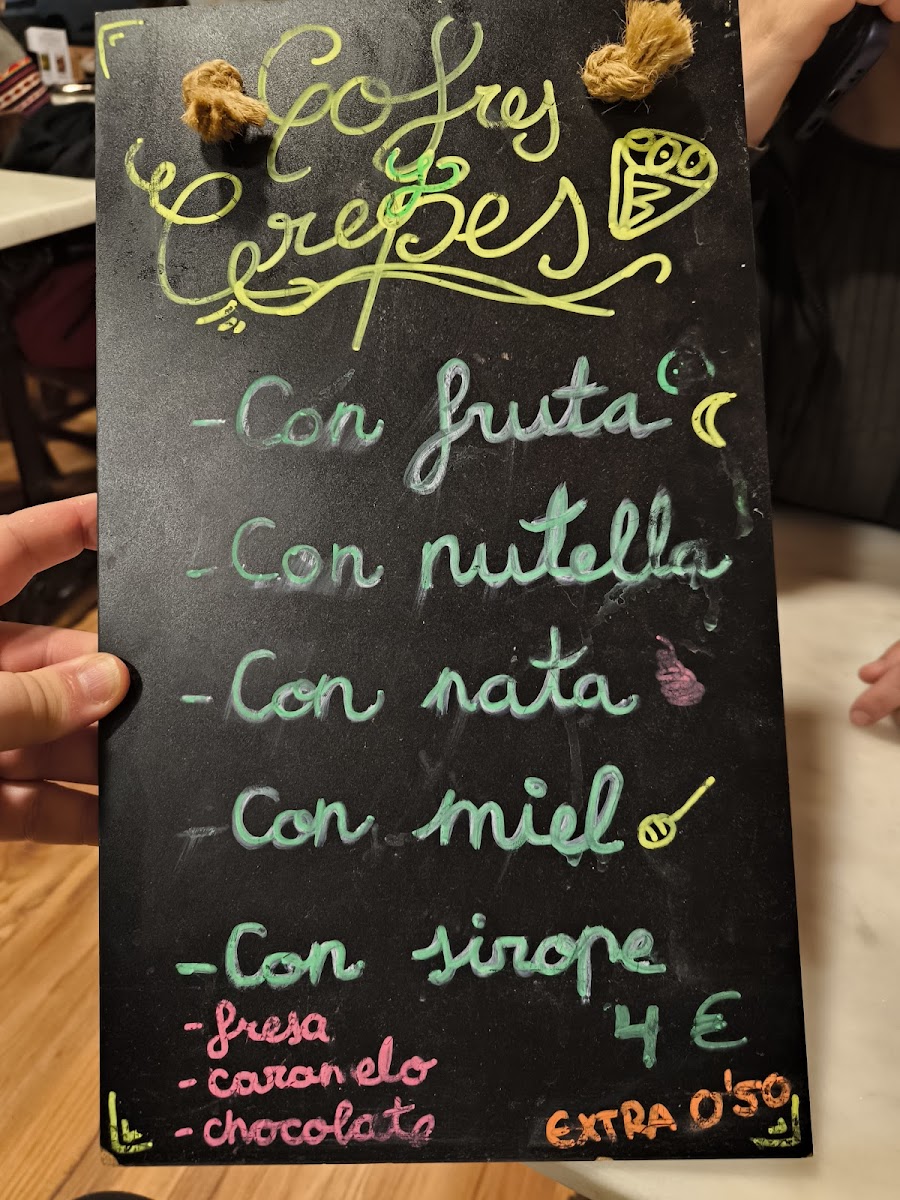 Gofres
y
Crepes
- Con fruta
- Con nutella
- Con nata
- Con miel
- Con sirope
- fresa
- caramelo
- chocolate
4 €
EXTRA 0'50